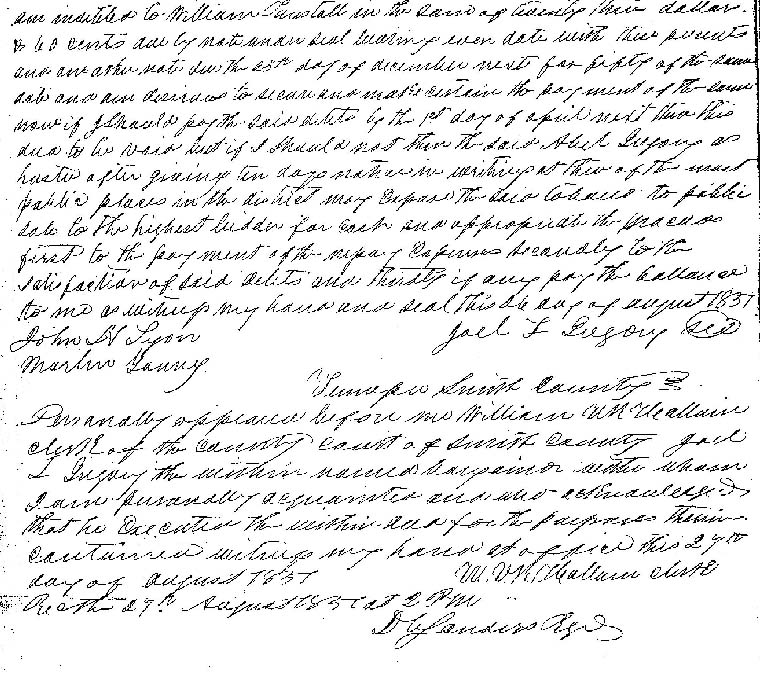 am indebted to William Tunstall in the sum of twenty three dollars
& 60 cents due by note under seal bearing even date with these presents
and another note due the 25th day of december next for fifty of the same
date and am desirous to secure and make certain the payment of the same
now if I should pay the said debts by the 1st day of april next then this
deed to be void but if I should not then the said Abel Gregory as
trustee after giving ten days notice in writing at three of the most
public places in the district may expose the said tobacco to public
sale to the highest bidder for cash and appropriate the proceeds
first to the payment of the necessary expenses secondly to the
satisfaction of said debts and thirdly if any pay the ballance
to me as witness my hand and seal this 26 day of august 1851
John H Lyon Joel L Gregory seal
Martin
Tennessee Smith County
Personally appeared before me William V R Hallum
clerk of the county court of Smith County Joel
L Gregory the within named bargainor with whom
I am personally acquainted and who acknowledged
that he Executed the within deed for the purposes therein
contained witness my hand at office this 27th
day of august 1851 W. V R Hallum clerk
Recd the 27th August 1851 at 2 PM
D C Sanders Regr